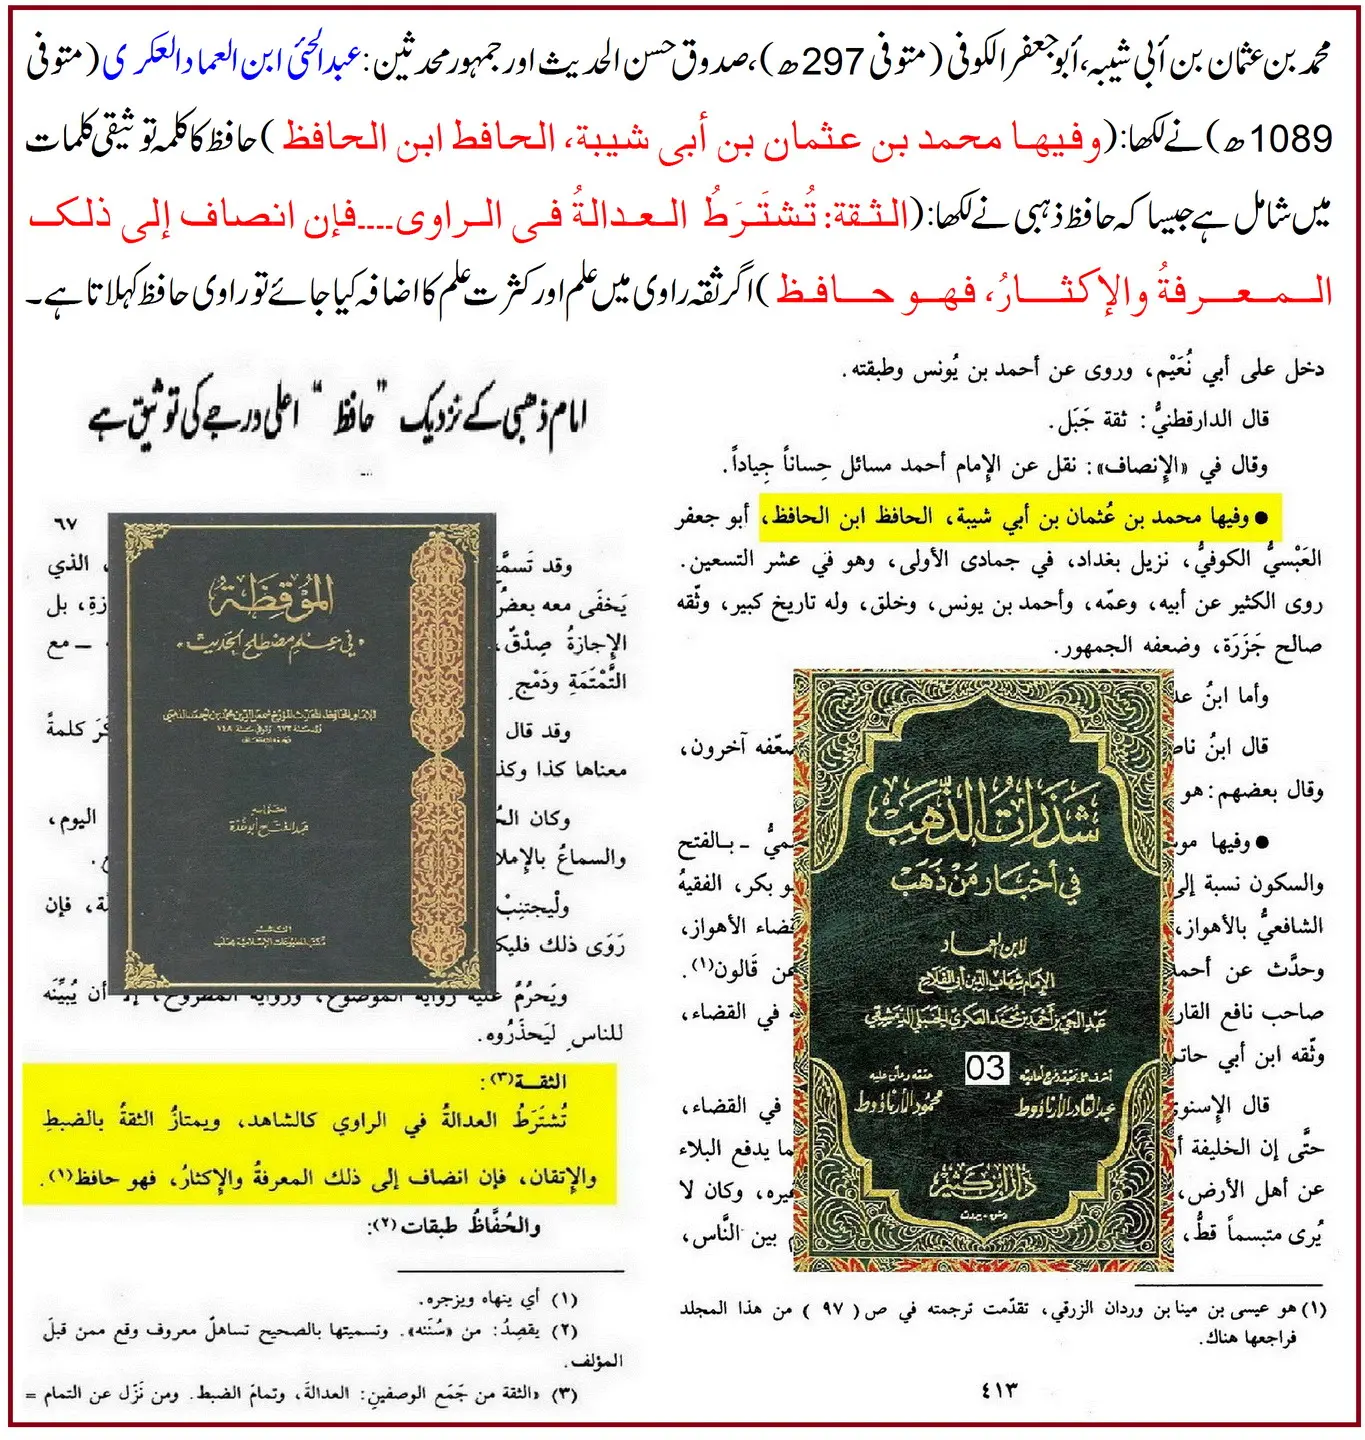 محمد بن عثمان بن أبی شیبہ، أبو جعفر الکوفی (متوفی 297ھ)، صدوق حسن الحدیث اور جمہور محدثین: عبدالحئی ابن العماد العکری (متوفی
1089ھ) نے لکھا: (وفیها محمد بن عثمان بن أبی شیبة، الحافظ ابن الحافظ) حافظ کا کلمہ توثیقی کلمات
میں شامل ہے جیسا کہ حافظ ذہبی نے لکھا: (الثقة: تُشتَرَطُ العدالةُ فی الراوی....فإن انصاف إلی ذلک
المعرفةُ والإکثارُ، فهو حافظ) اگر ثقہ راوی میں علم اور کثرت علم کا اضافہ کیا جائے تو راوی حافظ کہلاتا ہے۔
دخل على أبي نُعَيْم، وروى عن أحمد بن يُونس وطبقته.
قال الدارقطنيُّ: ثقة جَبَل.
وقال في «الإنصاف»: نقل عن الإمام أحمد مسائل حِساناً جِياداً.
● وفيها محمد بن عُثمان بن أبي شيبة، الحافظ ابن الحافظ، أبو جعفر
العَبْسيُّ الكوفيُّ، نزيل بغداد، في جمادى الأولى، وهو في عشر التسعين.
روى الكثير عن أبيه، وعمّه، وأحمد بن يونس، وخلق، وله تاريخ كبير، وثّقه
صالح جَزَرَة، وضعفه الجمهور.
وأما ابنُ
قال ابنُ
ضعّفه آخرون،
وقال بعضهم: هو
● وفيها
ـميُّ ـ بالفتح
والسكون نسبة إلى
ـو بكر، الفقيهُ
الشافعيُّ بالأهواز،
ـضاء الأهواز،
وحدَّث عن
ـن قَالون(١).
صاحب نافع
ـه في القضاء،
وثّقه ابن أبي
قال الإسنوي
في القضاء،
حتَّى إن الخليفة
ـما يدفع البلاء
عن أهل الأرض،
ـيره، وكان لا
يُرى متبسماً قطُّ،
ـم بين النَّاس،
شَذَراتُ الذَّهَب
في أخبار مَنْ ذَهَب
لابن العماد
الإمام شهاب الدين أبي الفلاح
عبد الحي بن أحمد بن محمد العكري الحنبلي الدمشقي
03
أشرف على تحقيقه وخرج أحاديثه
عبد القادر الأرناؤوط
حققه وعلق عليه
محمود الأرناؤوط
دار ابن كثير
دمشق - بيروت
(١) هو عيسى بن مينا بن وردان الزرقي، تقدّمت ترجمته في ص ( ٩٧ ) من هذا المجلد
فراجعها هناك.
٤١٣
امام ذھبی کے نزدیک "حافظ" اعلی درجے کی توثیق ہے
٦٧
وقد
، الذي
يَخفَى معه بعضُ
ـازةِ، بل
الإجازةُ صِدْقٌ،
ـ مع
التَّمْتَمَةِ ودَمْج
وقد قال
ـكَرَ كلمةً
معناها كذا
وكان
اليوم،
والسماعُ
ولْيجتنِبْ
فإن
رَوَى ذلك
ويَحرُمُ عليه روايةُ الموضوع، وروايةُ المطروح، إلا أن يُبيِّنَه
للناسِ لِيَحذَرُوه.
المُوقِظَة
في علم مصطلح الحديث
اعتنى به
عبد الفتاح أبو غدة
الناشر
مكتب المطبوعات الإسلامية بحلب
الثقـة(٣):
تُشتَرَطُ العدالةُ في الراوي كالشاهد، ويمتازُ الثقةُ بالضبطِ
والإتقان، فإن انضاف إلى ذلك المعرفةُ والإكثارُ، فهو حافظ(١).
والحُفَّاظُ طبقات(٢):
(١) أي ينهاه ويزجره.
(٢) يقصِدُ: من «سُنَنه». وتسميتها بالصحيح تساهلٌ معروف وقع ممن قبلَ
المؤلف.
(٣) «الثقة من جَمَع الوصفين: العدالةَ، وتمامَ الضبط. ومن نَزَل عن التمام =